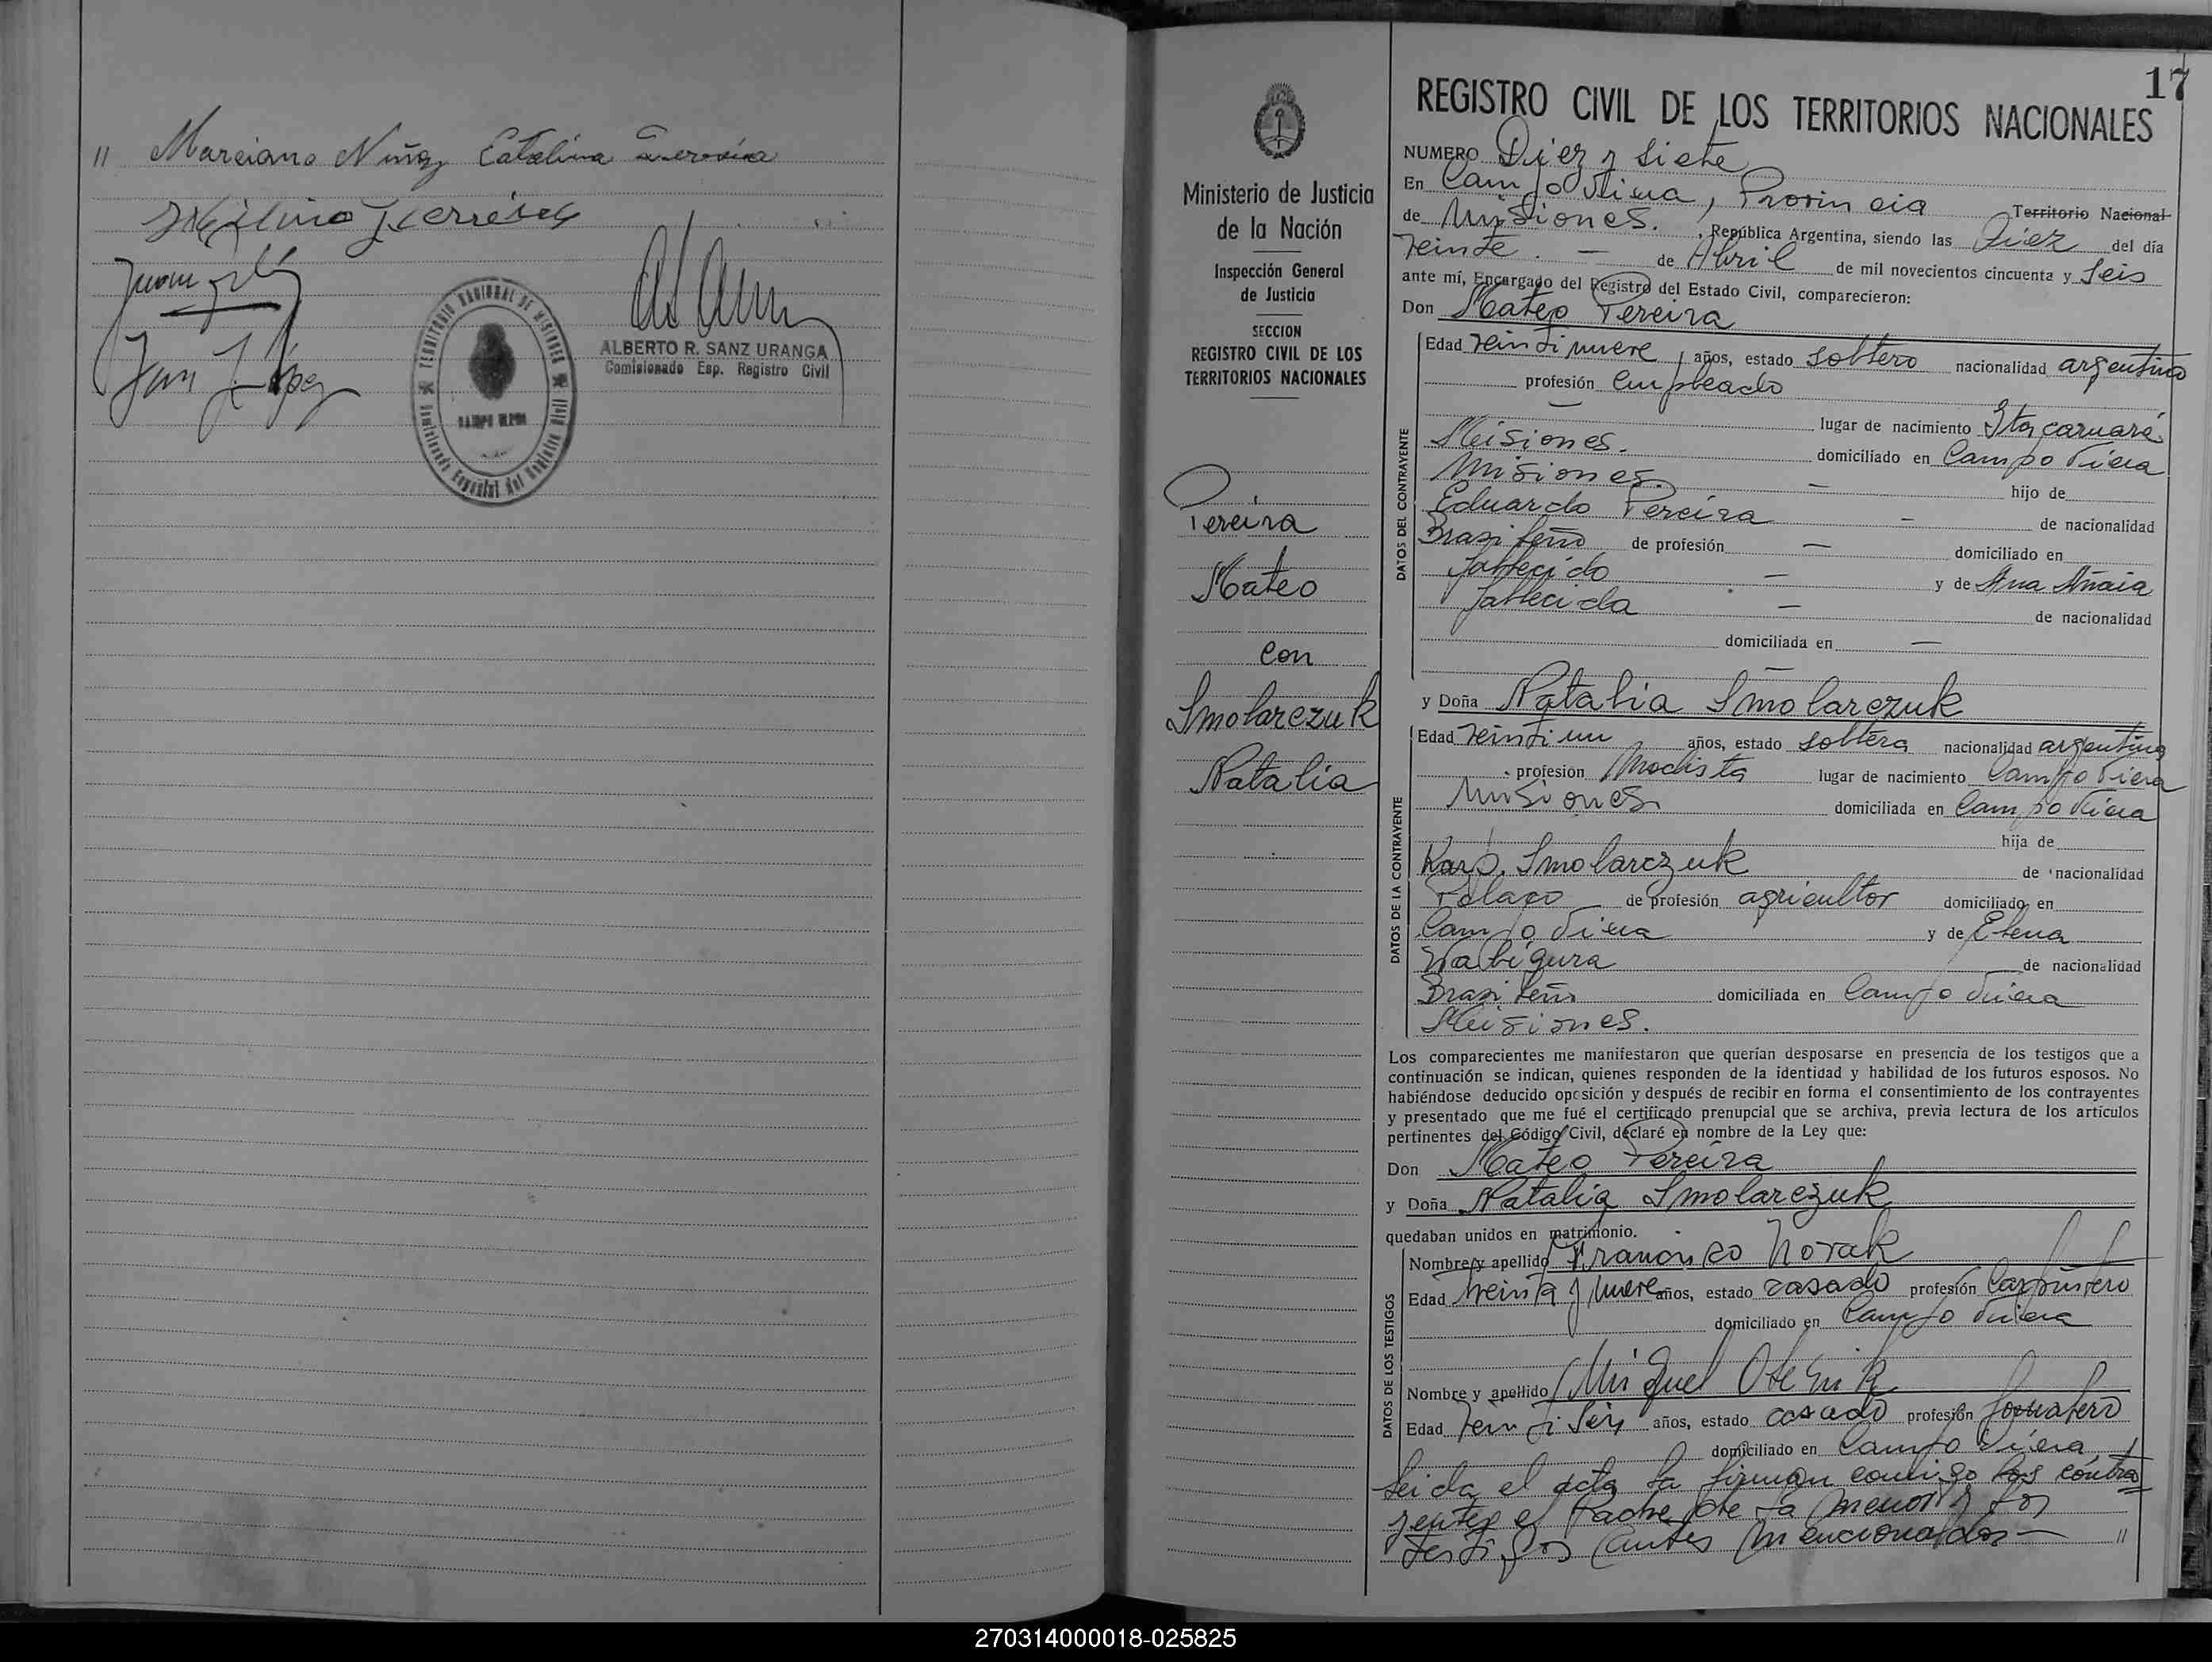 " Marciano Nuñez Catalina
Juan
Juan J. López
TERRITORIO NACIONAL DE MISIONES
CAMPO VIERA
Comisionado Especial del Registro Civil
ALBERTO R. SANZ URANGA
Comisionado Esp. Registro Civil
17
Ministerio de Justicia
de la Nación
Inspección General
de Justicia
SECCION
REGISTRO CIVIL DE LOS
TERRITORIOS NACIONALES
Pereira
Mateo
con
Smolarczuk
Natalia
REGISTRO CIVIL DE LOS TERRITORIOS NACIONALES
NUMERO Diez y siete
En Campo Viera, Provincia Territorio Nacional
de Misiones. , República Argentina, siendo las Diez del día
veinte. — de Abril de mil novecientos cincuenta y seis
ante mí, Encargado del Registro del Estado Civil, comparecieron:
Don Mateo Pereira
DATOS DEL CONTRAYENTE
Edad veintinueve años, estado soltero nacionalidad argentino
profesión Empleado
— lugar de nacimiento Itacaruaré
Misiones. domiciliado en Campo Viera
Misiones. — hijo de
Eduardo Pereira — de nacionalidad
Brasileño de profesión — domiciliado en
fallecido — y de Ana
fallecida — de nacionalidad
domiciliada en —
—
y Doña Natalia Smolarczuk
DATOS DE LA CONTRAYENTE
Edad veintiun años, estado soltera nacionalidad argentina
profesion Modista lugar de nacimiento Campo Viera
Misiones domiciliada en Campo Viera
hija de
Karp. Smolarczuk de nacionalidad
Polaco de profesión agricultor domiciliado en
Campo Viera y de Elena
de nacionalidad
Brasileña domiciliada en Campo Viera
Misiones.
Los comparecientes me manifestaron que querían desposarse en presencia de los testigos que a
continuación se indican, quienes responden de la identidad y habilidad de los futuros esposos. No
habiéndose deducido oposición y después de recibir en forma el consentimiento de los contrayentes
y presentado que me fué el certificado prenupcial que se archiva, previa lectura de los artículos
pertinentes del Código Civil, declaré en nombre de la Ley que:
Don Mateo Pereira
y Doña Natalia Smolarczuk
quedaban unidos en matrimonio.
DATOS DE LOS TESTIGOS
Nombre y apellido Francisco Novak
Edad treinta y nueve años, estado casado profesión Carpintero
domiciliado en Campo Viera
Nombre y apellido Miguel Olegnik
Edad veintiseis años, estado casado profesión Jornalero
domiciliado en Campo Viera
Leida el acta la firman conmigo los contra
yentes el Padre de la menor y los
testigos antes mencionados— "
270314000018-025825